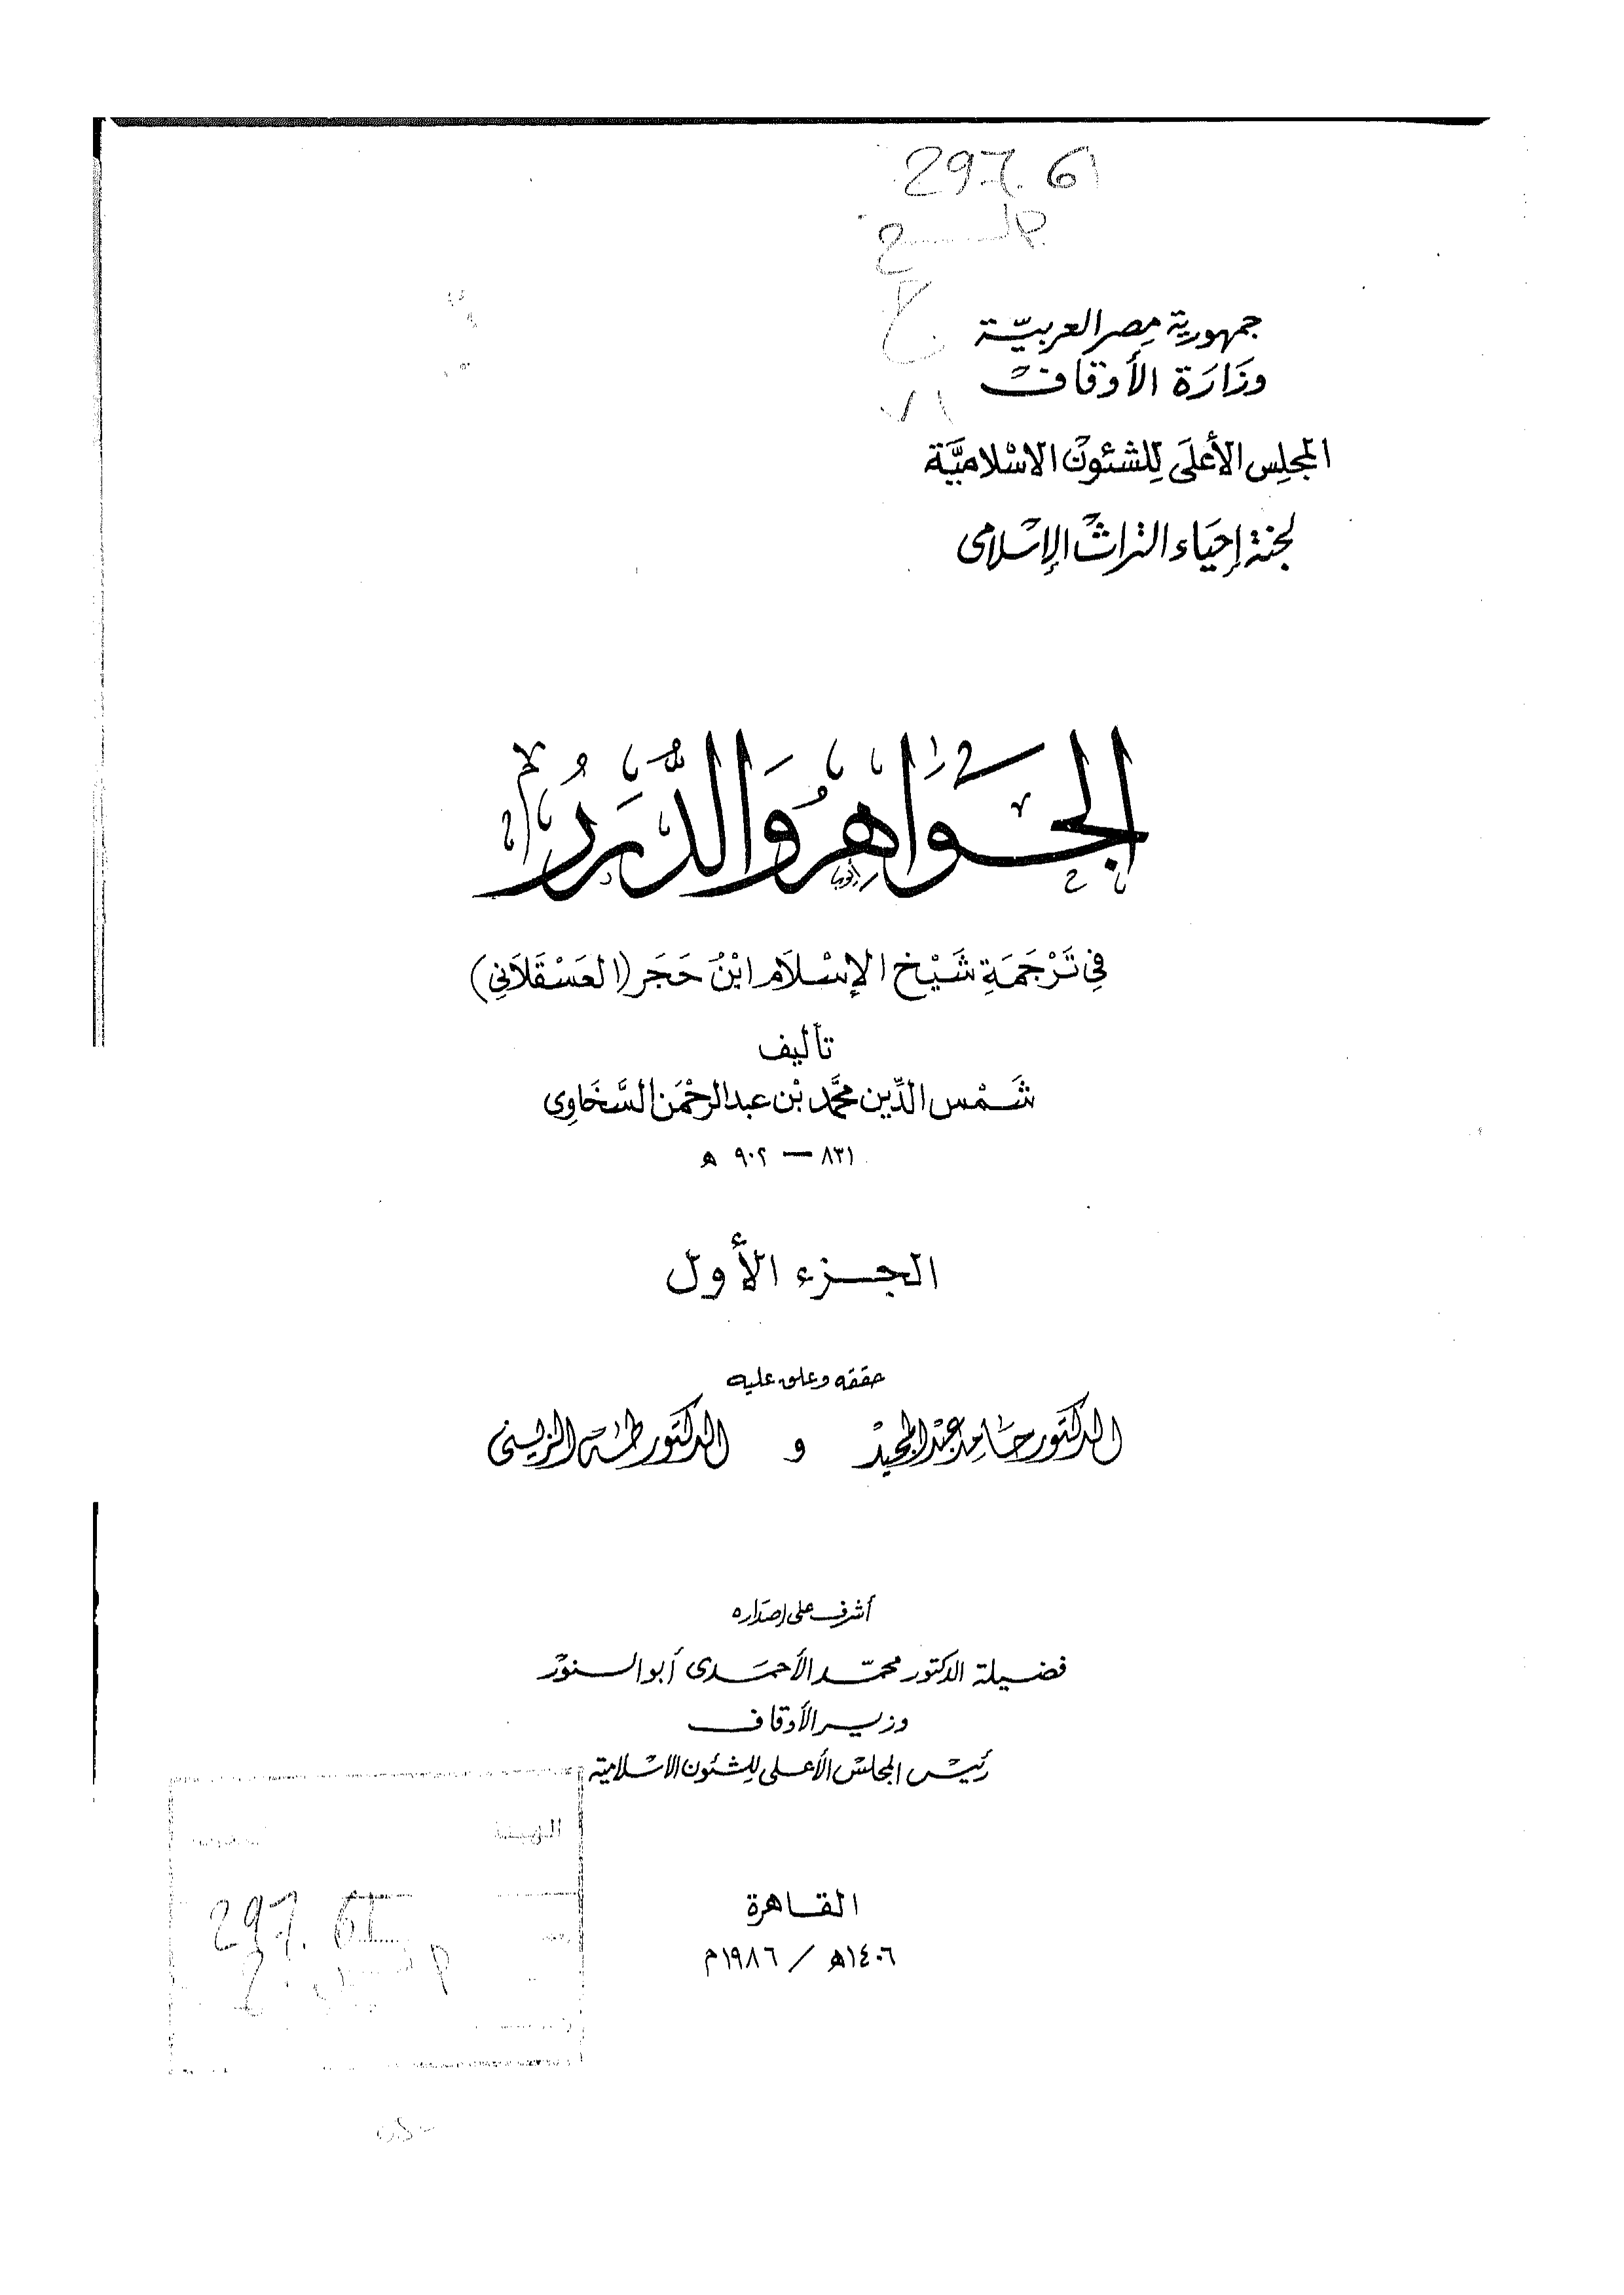 297.61
جمهورية مصر العربيّة
وزَارَة الأوقاف
المجلِس الأعلَى لِلشئون الاسْلاميَّة
لجنة إحيَاء التراث الإسْلامى
الجَوَاهِرُ وَالدُّرَرُ
فِي تَرْجَمَةِ شَيْخ الإسْلَام ابْنُ حَجَر (العَسْقَلَانِي)
تأليف
شَمْس الدِّين محمَّد بْن عبد الرحْمَن السَّخَاوِى
٨٣١ — ٩٠٢ هـ
الجزء الأول
حققه وعلق عليه
الدكتور حَامِد عَبْد المجيْد و الدكتور طه الزينى
أشرف على إصدَاره
فضيلة الدكتور محمّد الأحمَدى أبو السنور
وزير الأوقاف
رئيس المجلس الأعلى لِلشئون الاسْلامية
الهيئة
297.61
القاهرة
١٤٠٦هـ / ١٩٨٦م